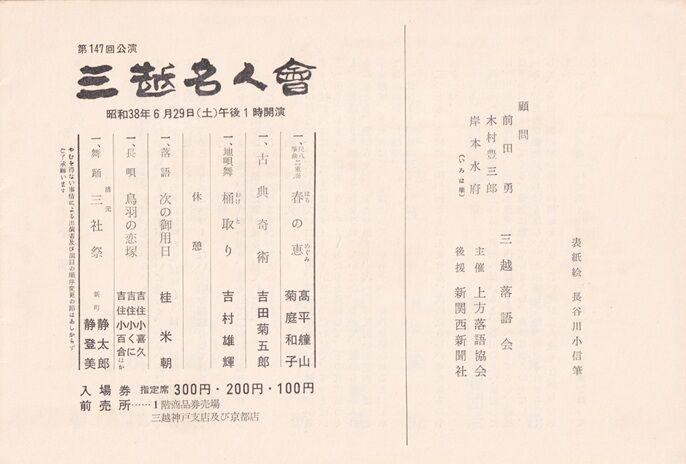 表紙絵 長谷川小信筆
三越落語会
主催 上方落語協会
後援 新関西新聞社
顧問
前田勇
木村豊三郎
岸本水府
(いろは順)
第147回公演
三越名人會
昭和38年6月29日(土)午後1時開演
一、尺八二重奏 春の恵 高平鐘山 菊庭和子
はる めぐみ
一、古典奇術 吉田菊五郎
一、地唄舞 桶取り 吉村雄輝
おけと
休憩
一、落語 次の御用日 桂米朝
一、長唄 鳥羽の恋塚 吉住小喜久 吉住小くに 吉住小百合 ほか
一、舞踊 清元 三社祭 新町 静太郎 静登美
やむを得ない事情による出演者及び演目の順序変更の節はあしからず
ご了承願います
入場券 指定席 300円・200円・100円
前売所……1階商品券売場
三越神戸支店及び京都店